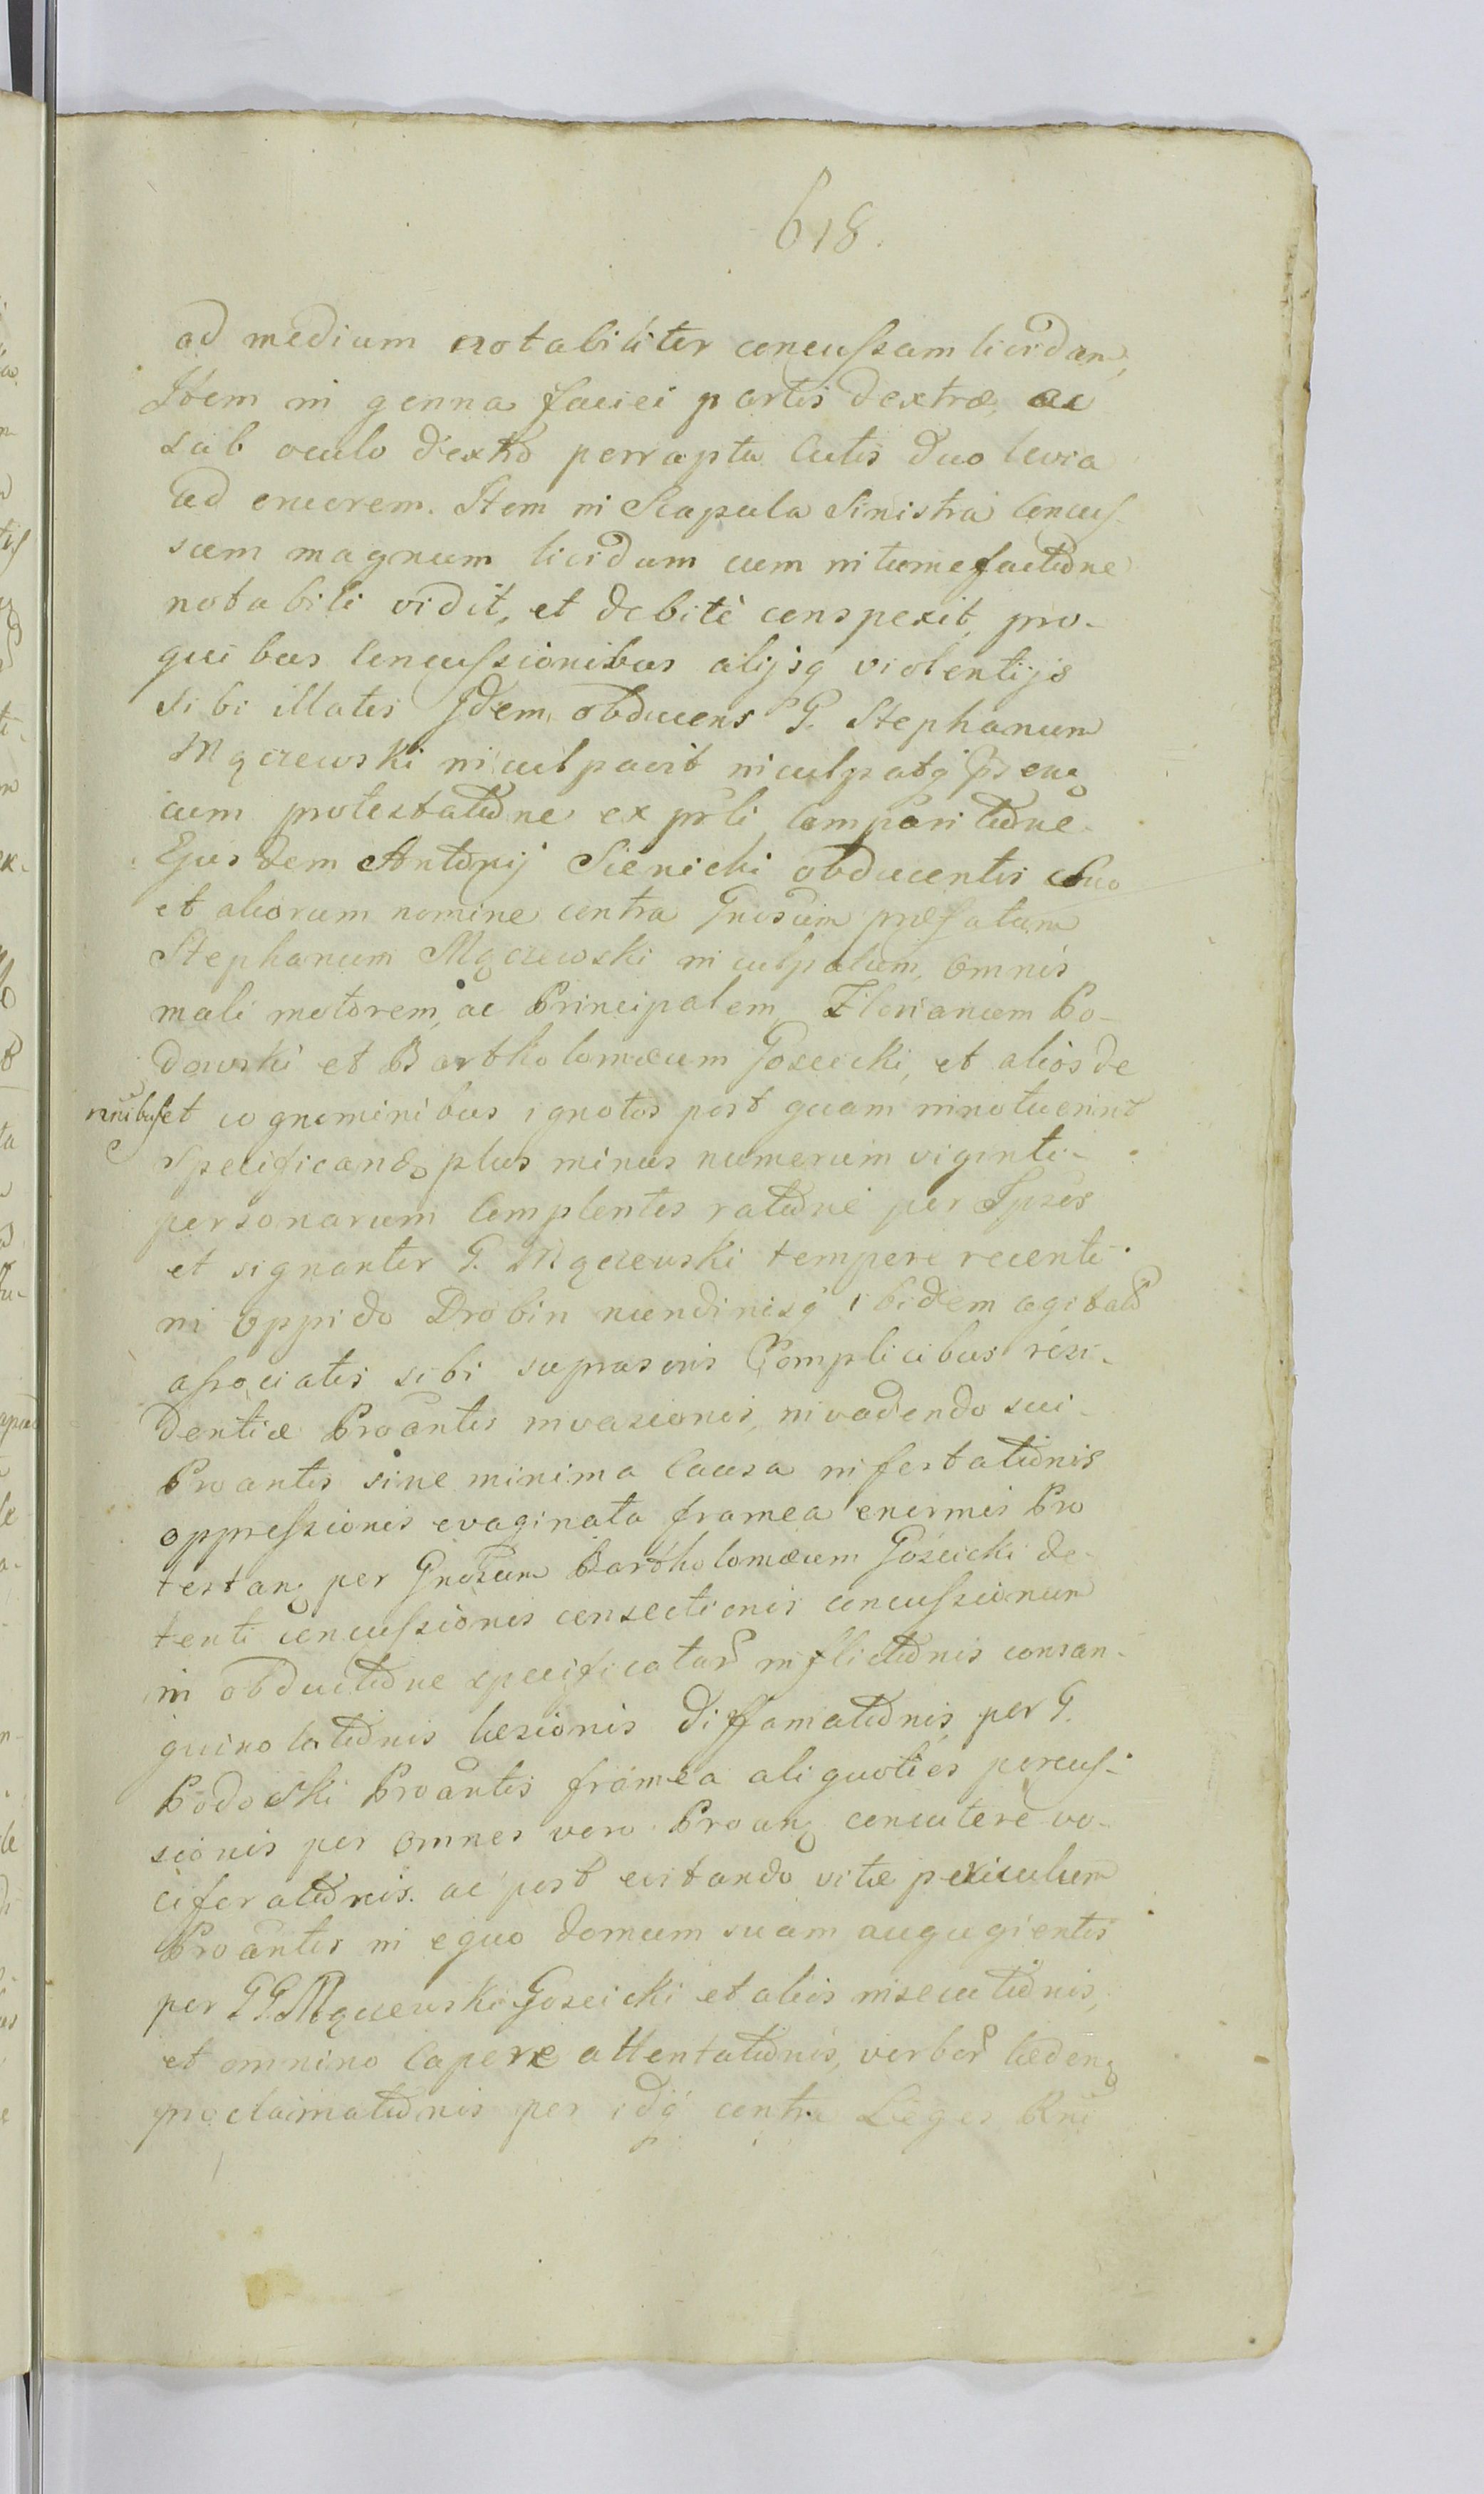 618.
ad medium notabiliter concussam lividam,
Item in genna faciei partis dextræ, ac
sub oculo dextro perrupta cutis duo levia
ad cruorem. Item in Scapula Sinistra concus-
sum magnum lividum cum intumefactione
notabili vidit, et debitè conspexit, pro-
quibus concussionibus alijsq violentijs
sibi illatis Idem obducens G. Stephanum
Mączewski inculpavit inculpatq
cum protestatione ex prli comparitione
Ejusdem Antonij Sienicki obducentis suo
et aliorum nomine contra Gnosum præfatum
Stephanum Mączewski inculpatum, omnis
mali motorem, ac Principalem, Florianum Po-
dowski et Bartholomæum Goscicki, et alios de
nnibus et cognominibus ignotos post quam innotuerint
specificandos plus minus numerum viginti-
personarum complentes ratione per Ipsos
et signanter G. Mączewski tempore recenti
in oppido Drobin nundinisq ibidem agitatis
associatis sibi suprascris Complicibus resi-
dentiæ Proantis invasionis, invadendo sui
Proantis sine minima causa infestationis
oppressionis evaginata framea enormis Pro
testan per Gnosum Bartholomæum Goscicki de-
tenti concussionis consectionis concussionum
in obductione specificatar inflictionis consan-
guinolationis læsionis diffamationis per G.
Podoski Proantis framea aliquoties percus-
sionis per omnes vero Proan concutere vo-
ciferationis. ac post evitando vitæ periculum
Proantis in equo domum suam aufugientis
per GG. Mączewski Goscicki et alios insecutionis,
et omnino capere attentationis, verbor læden
proclamationis per idq contra Leges Rni